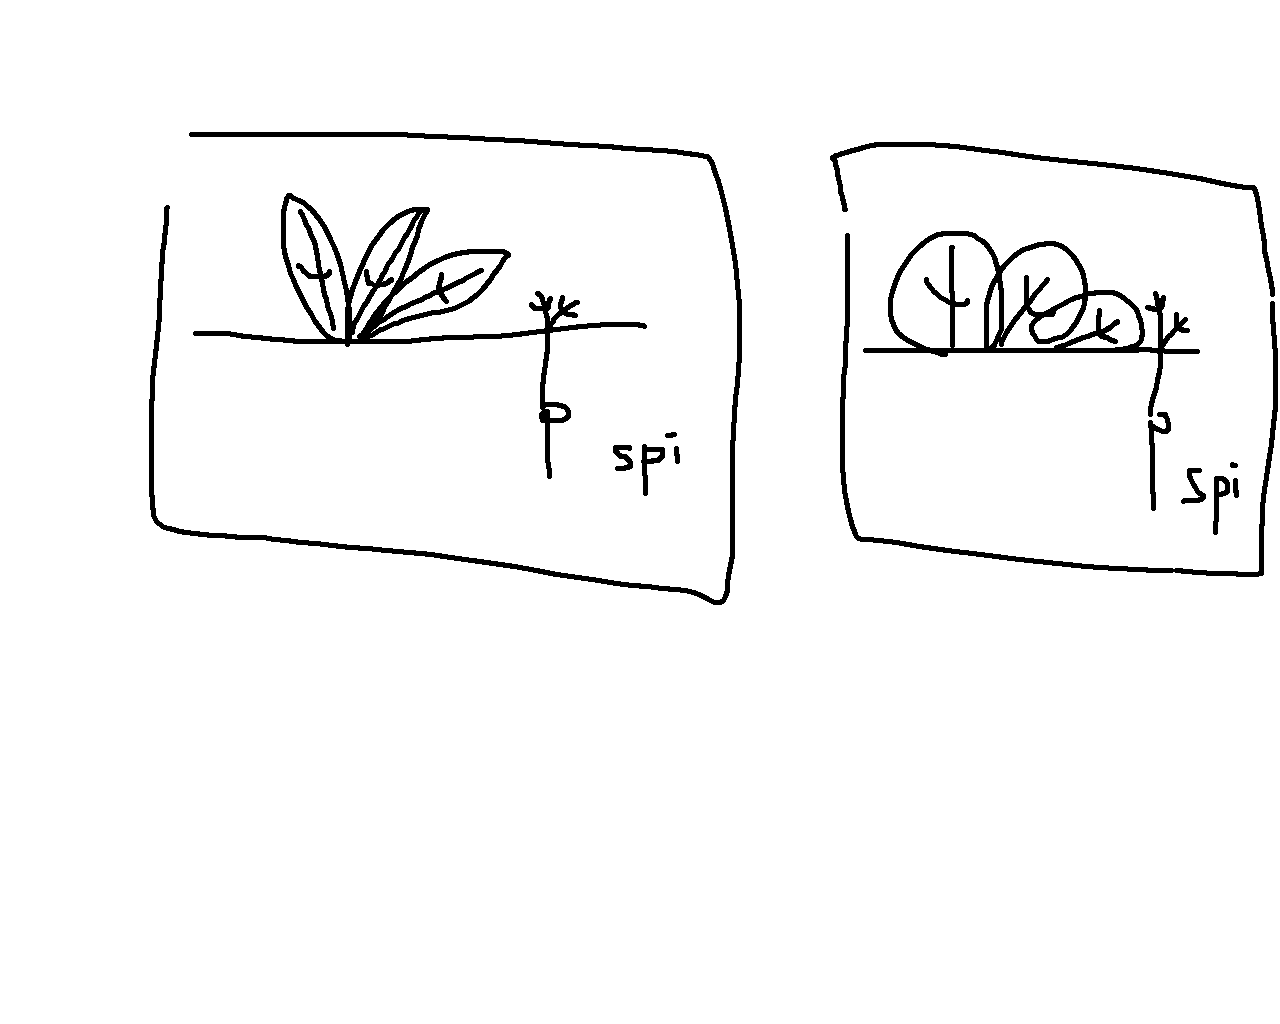 spi
spi